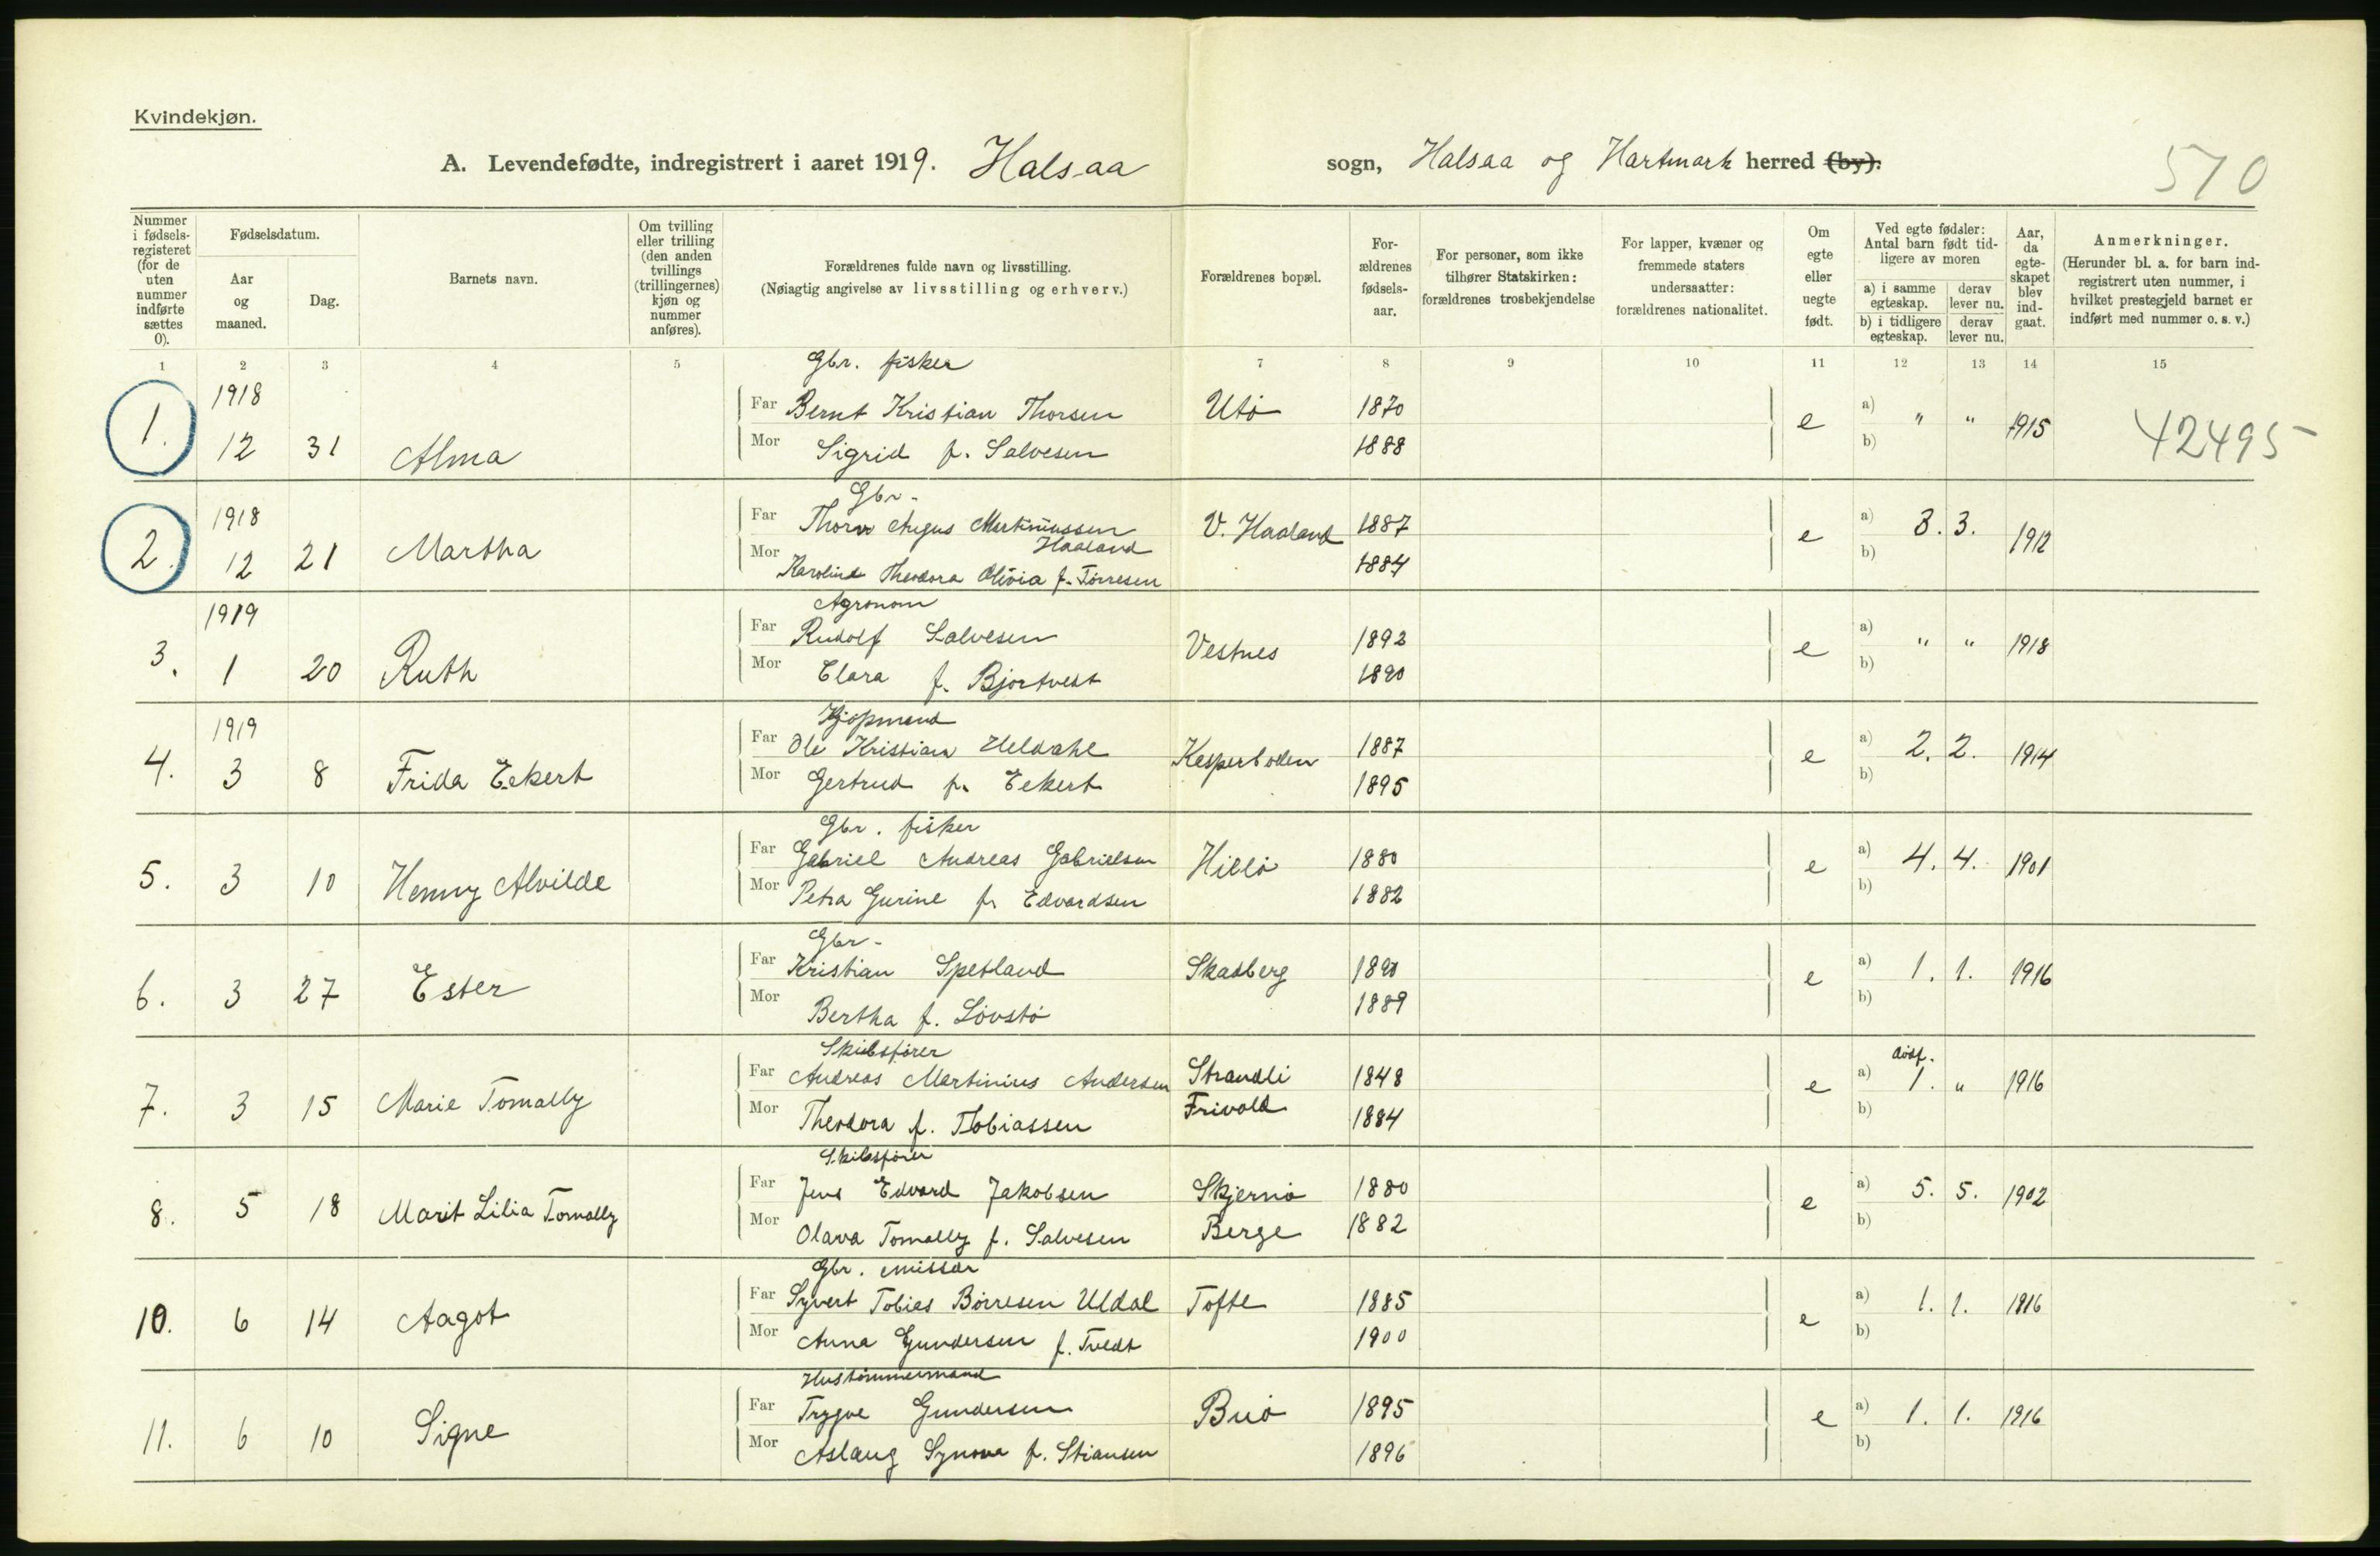 Kvindekjøn.
A. Levendefødte, indregistrert i aaret 1919. Halsaa sogn, Halsaa og Hartmark herred (by).
570
Nummer i fødsels-registeret (for de uten nummer indførte sættes 0).
Fødselsdatum.
Aar og maaned.
Dag.
Barnets navn.
Om tvilling eller trilling (den anden tvillings (trillingernes) kjøn og nummer anføres).
Forældrenes fulde navn og livsstilling.
(Nøiagtig angivelse av livsstilling og erhverv.)
Forældrenes bopæl.
For-ældrenes fødsels-aar.
For personer, som ikke tilhører Statskirken: forældrenes trosbekjendelse
For lapper, kvæner og fremmede staters undersaatter: forældrenes nationalitet.
Om egte eller uegte født.
Ved egte fødsler: Antal barn født tid-ligere av moren
a) i samme egteskap. derav lever nu.
b) i tidligere egteskap. derav lever nu.
Aar, da egte-skapet blev ind-gaat.
Anmerkninger.
(Herunder bl. a. for barn ind-registrert uten nummer, i hvilket prestegjeld barnet er indført med nummer o. s. v.)
1 2 3 4 5 7 8 9 10 11 12 13 14 15
Gbr. fisker
1918
Far Bernt Kristian Thorsen Utö 1870
1. 12 31 Alma e a) " " 1915 42495
Mor Sigrid f. Salvesen 1888 b)
Gbr.
1918
Far Thorn Angus Martinussen Haaland V. Haaland 1887
2. 12 21 Martha e a) 3. 3. 1912
Mor Theodora Olivia f. Tørresen 1884 b)
Agronom
1919
Far Rudolf Salvesen Vestnes 1892
3. 1 20 Ruth e a) " " 1918
Mor Clara f. Bjortvedt 1890 b)
Kjöpmand
1919
Far Ole Kristian Uldahl Kasperboden 1887
4. 3 8 Frida Eckert e a) 2. 2. 1914
Mor Gertrud f. Eckert 1895 b)
Gbr. fisker
Far Gabriel Andreas Gabrielsen Hillö 1880
5. 3 10 Henny Alvilde e a) 4. 4. 1901
Mor Petra Gurine f. Edvardsen 1882 b)
Gbr.
Far Kristian Spetland Skadberg
6. 3 27 Ester e a) 1. 1. 1916
Mor Bertha f. Lövstö 1889 b)
Skibsfører
Far Andreas Martinius Andersen Strandli 1848
7. 3 15 Marie Tomally e a) dödf. 1. " 1916
Mor Theodora f. Tobiassen Frivold 1884 b)
Skibsfører
Far Jens Edvard Jakobsen Skjernö 1880
8. 5 18 Marit Lilia Tomally e a) 5. 5. 1902
Mor Olava Tomally f. Salvesen Berge 1882 b)
Gbr. emissær
Far Syvert Tobias Börresen Uldal Tofte 1885
10. 6 14 Aagot e a) 1. 1. 1916
Mor Anna Gundersen f. Tvedt 1900 b)
Hustømmermand
Far Trygve Gundersen Buö 1895
11. 6 10 Signe e a) 1. 1. 1916
Mor Aslaug Synova f. Stiansen 1896 b)